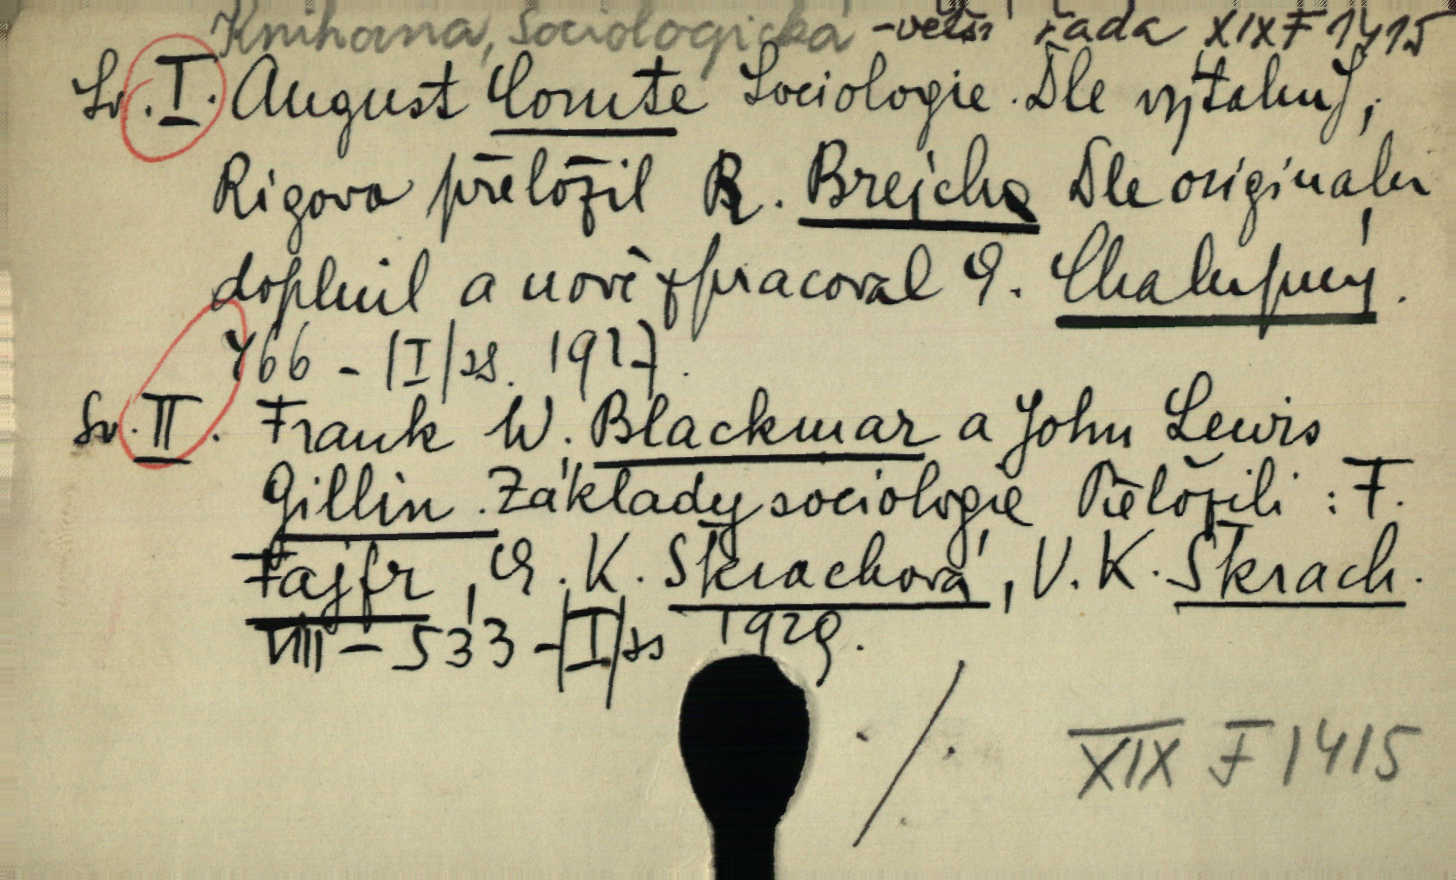 Knihovna, Sociologická -větší řada XIX F 1415
Sv. I. August Comte Sociologie. Dle výtahu J,
Rigova přeložil R. Brejcha Dle originalu
doplnil a nově zpracoval E. Chalupný.
466 - |I| ss. 1927.
Sv. II. Frank W. Blackmar a John Lewis
Gillin. Základy sociologie Přeložili: F.
Fajfr, E. K. Škrachová, V. K. Škrach.
VIII - 533 - |I| ss 1929.
./.
XIX F 1415